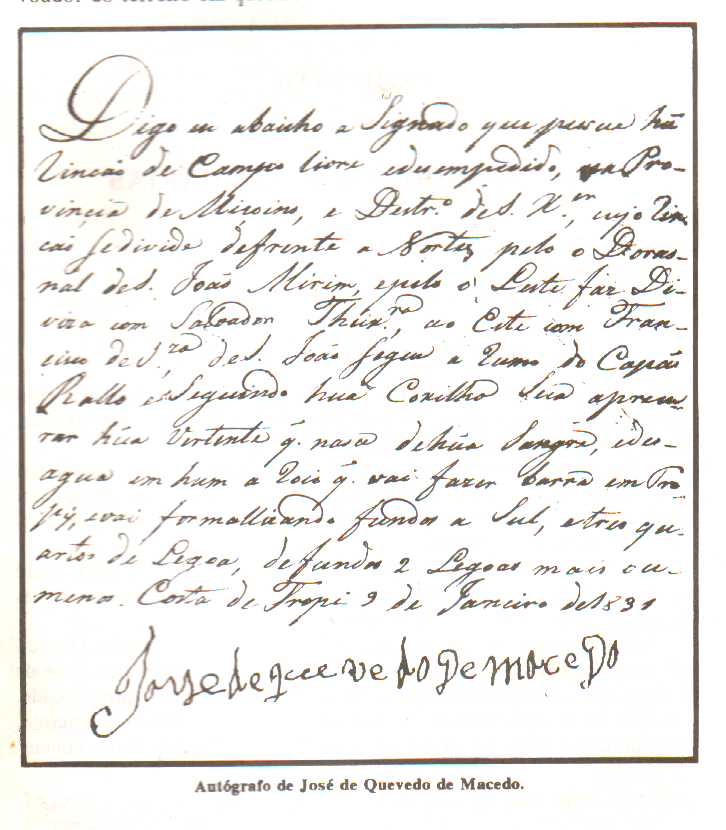 Digo eu abaicho a Signado que pesue hũ
Rincaõ de Campo livre edesempedido, na Pro-
vincia de Miçoins, e Destr.º de S. X.er, cujo Rin-
caõ sedivide defrente a Norte, pelo o
nal de S. Joaõ Mirim, epelo o Leste faz Di-
viza com Salvador ao Este com Fran-
cisco de S. Joaõ Segue a Rumo do Capaõ
Rallo e Seguindo hua Coxilha Sua aprecu-
rar hũa Vertente q. nasce dehũa Sangra, edes-
agua em hum a Roio q. vai fazer barra em Tro-
py, evai formallizando fundos a Sul, etres qu-
artos de Legoa, de fundos 2 Legoas mais ou-
menos. Costa de Tropi 9 de Janeiro de 1831
Joze de Quevedo De Macedo
Autógrafo de José de Quevedo de Macedo.